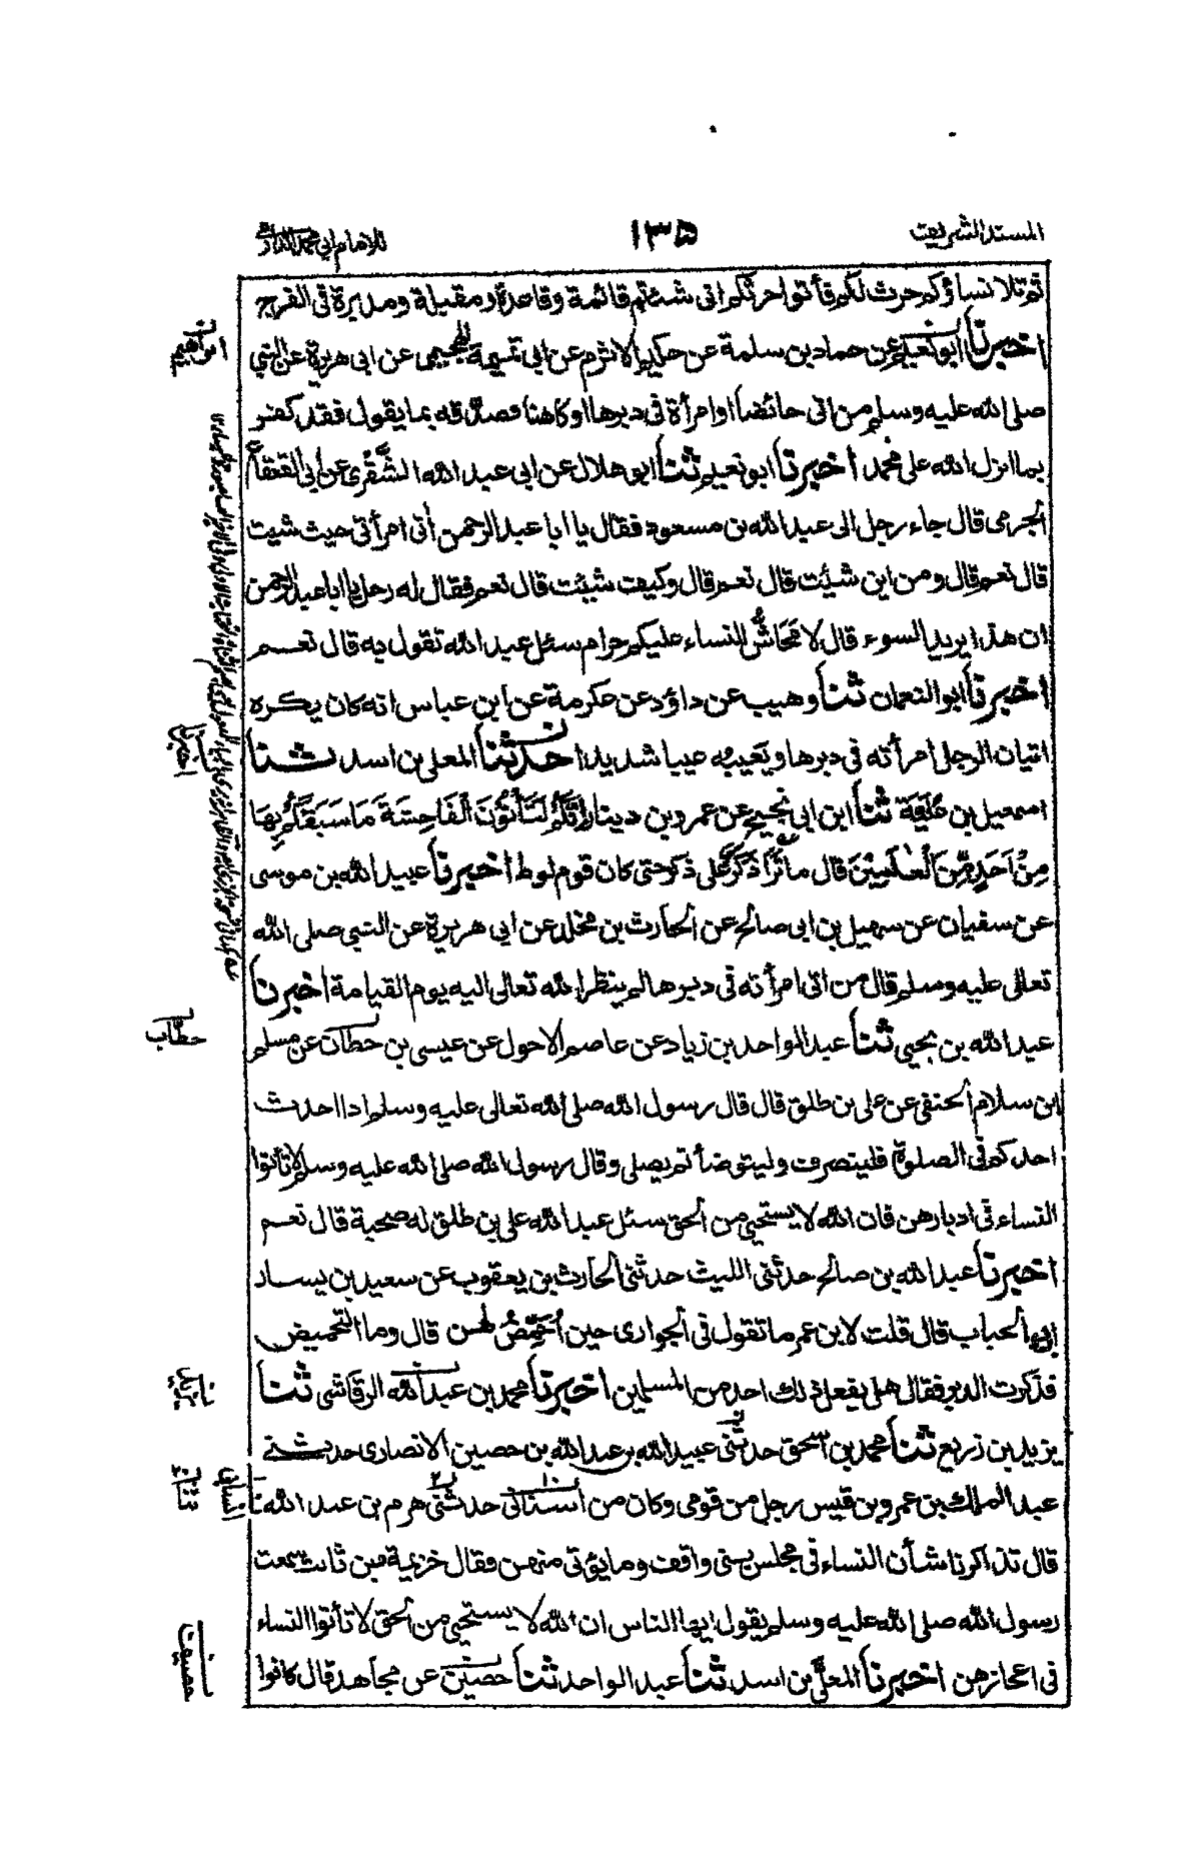 المسند الشريف
١٣٥
للامام ابي محمد الدارمي
ثم تلا نساؤكم حرث لكم فأتوا حرثكم انى شئتم قائمة وقاعدة ومقبلة ومدبرة في الفرج
اخبرنا ابو نعيم عن حماد بن سلمة عن حكيم الاثرم عن ابي تميمة الهجيمي عن ابي هريرة عن النبي
صلى الله عليه وسلم من اتى حائضا او امرأة في دبرها او كاهنا فصدقه بما يقول فقد كفر
بما انزل الله على محمد اخبرنا ابو نعيم ثنا ابو هلال عن ابي عبد الله الشقري عن ابي القعقاع
الجرمي قال جاء رجل الى عبد الله بن مسعود فقال يا ابا عبد الرحمن أتى امرأتي حيث شيت
قال نعم قال ومن اين شئت قال نعم قال وكيف شئت قال نعم فقال له رجل يا ابا عبد الرحمن
ان هذا يريد السوء قال لا محاش النساء عليكم حرام سئل عبد الله تقول به قال نعم
اخبرنا ابو النعمان ثنا وهيب عن داؤد عن عكرمة عن ابن عباس انه كان يكره
اتيان الرجل امرأته في دبرها ويعيبه عيبا شديدا حدثنا المعلى بن اسد ثنا
اسمعيل بن علية ثنا ابن ابي نجيح عن عمرو بن دينار إنكم لتأتون الفاحشة ما سبقكم بها
من احد من العلمين قال ما نزا ذكر على ذكر حتى كان قوم لوط اخبرنا عبيد الله بن موسى
عن سفيان عن سهيل بن ابي صالح عن الحارث بن مخلد عن ابي هريرة عن النبي صلى الله
تعالى عليه وسلم قال من اتى امرأته في دبرها لم ينظر الله تعالى اليه يوم القيامة اخبرنا
عبد الله بن يحيى ثنا عبد الواحد بن زياد عن عاصم الاحول عن عيسى بن حطان عن مسلم
ابن سلام الحنفي عن علي بن طلق قال قال رسول الله صلى الله تعالى عليه وسلم اذا احدث
احدكم في الصلوة فلينصرف وليتوضأ ثم يصلي وقال رسول الله صلى الله عليه وسلم لا تأتوا
النساء في ادبارهن فان الله لا يستحيي من الحق سئل عبد الله علي بن طلق له صحبة قال نعم
اخبرنا عبد الله بن صالح حدثني الليث حدثني الحارث بن يعقوب عن سعيد بن يسار
ابي الحباب قال قلت لابن عمر ما تقول في الجواري حين احمض لهن قال وما التحميض
فذكرت الدبر فقال هل يفعل ذلك احد من المسلمين اخبرنا محمد بن عبد الله الرقاشي ثنا
يزيد بن زريع ثنا محمد بن اسحق حدثني عبيد الله بن عبد الله بن حصين الانصاري حدثني
عبد الملك بن عمرو بن قيس رجل من قومي وكان من اسناني حدثني هرم بن عبد الله
قال تذاكرنا شأن النساء في مجلس بني واقف وما يؤتى منهن فقال خزيمة بن ثابت سمعت
رسول الله صلى الله عليه وسلم يقول ايها الناس ان الله لا يستحيي من الحق لا تأتوا النساء
في اعجازهن اخبرنا المعلى بن اسد ثنا عبد الواحد ثنا حصين عن مجاهد قال كانوا
ابراهيم
اخبرنا
حطاب
خصيف